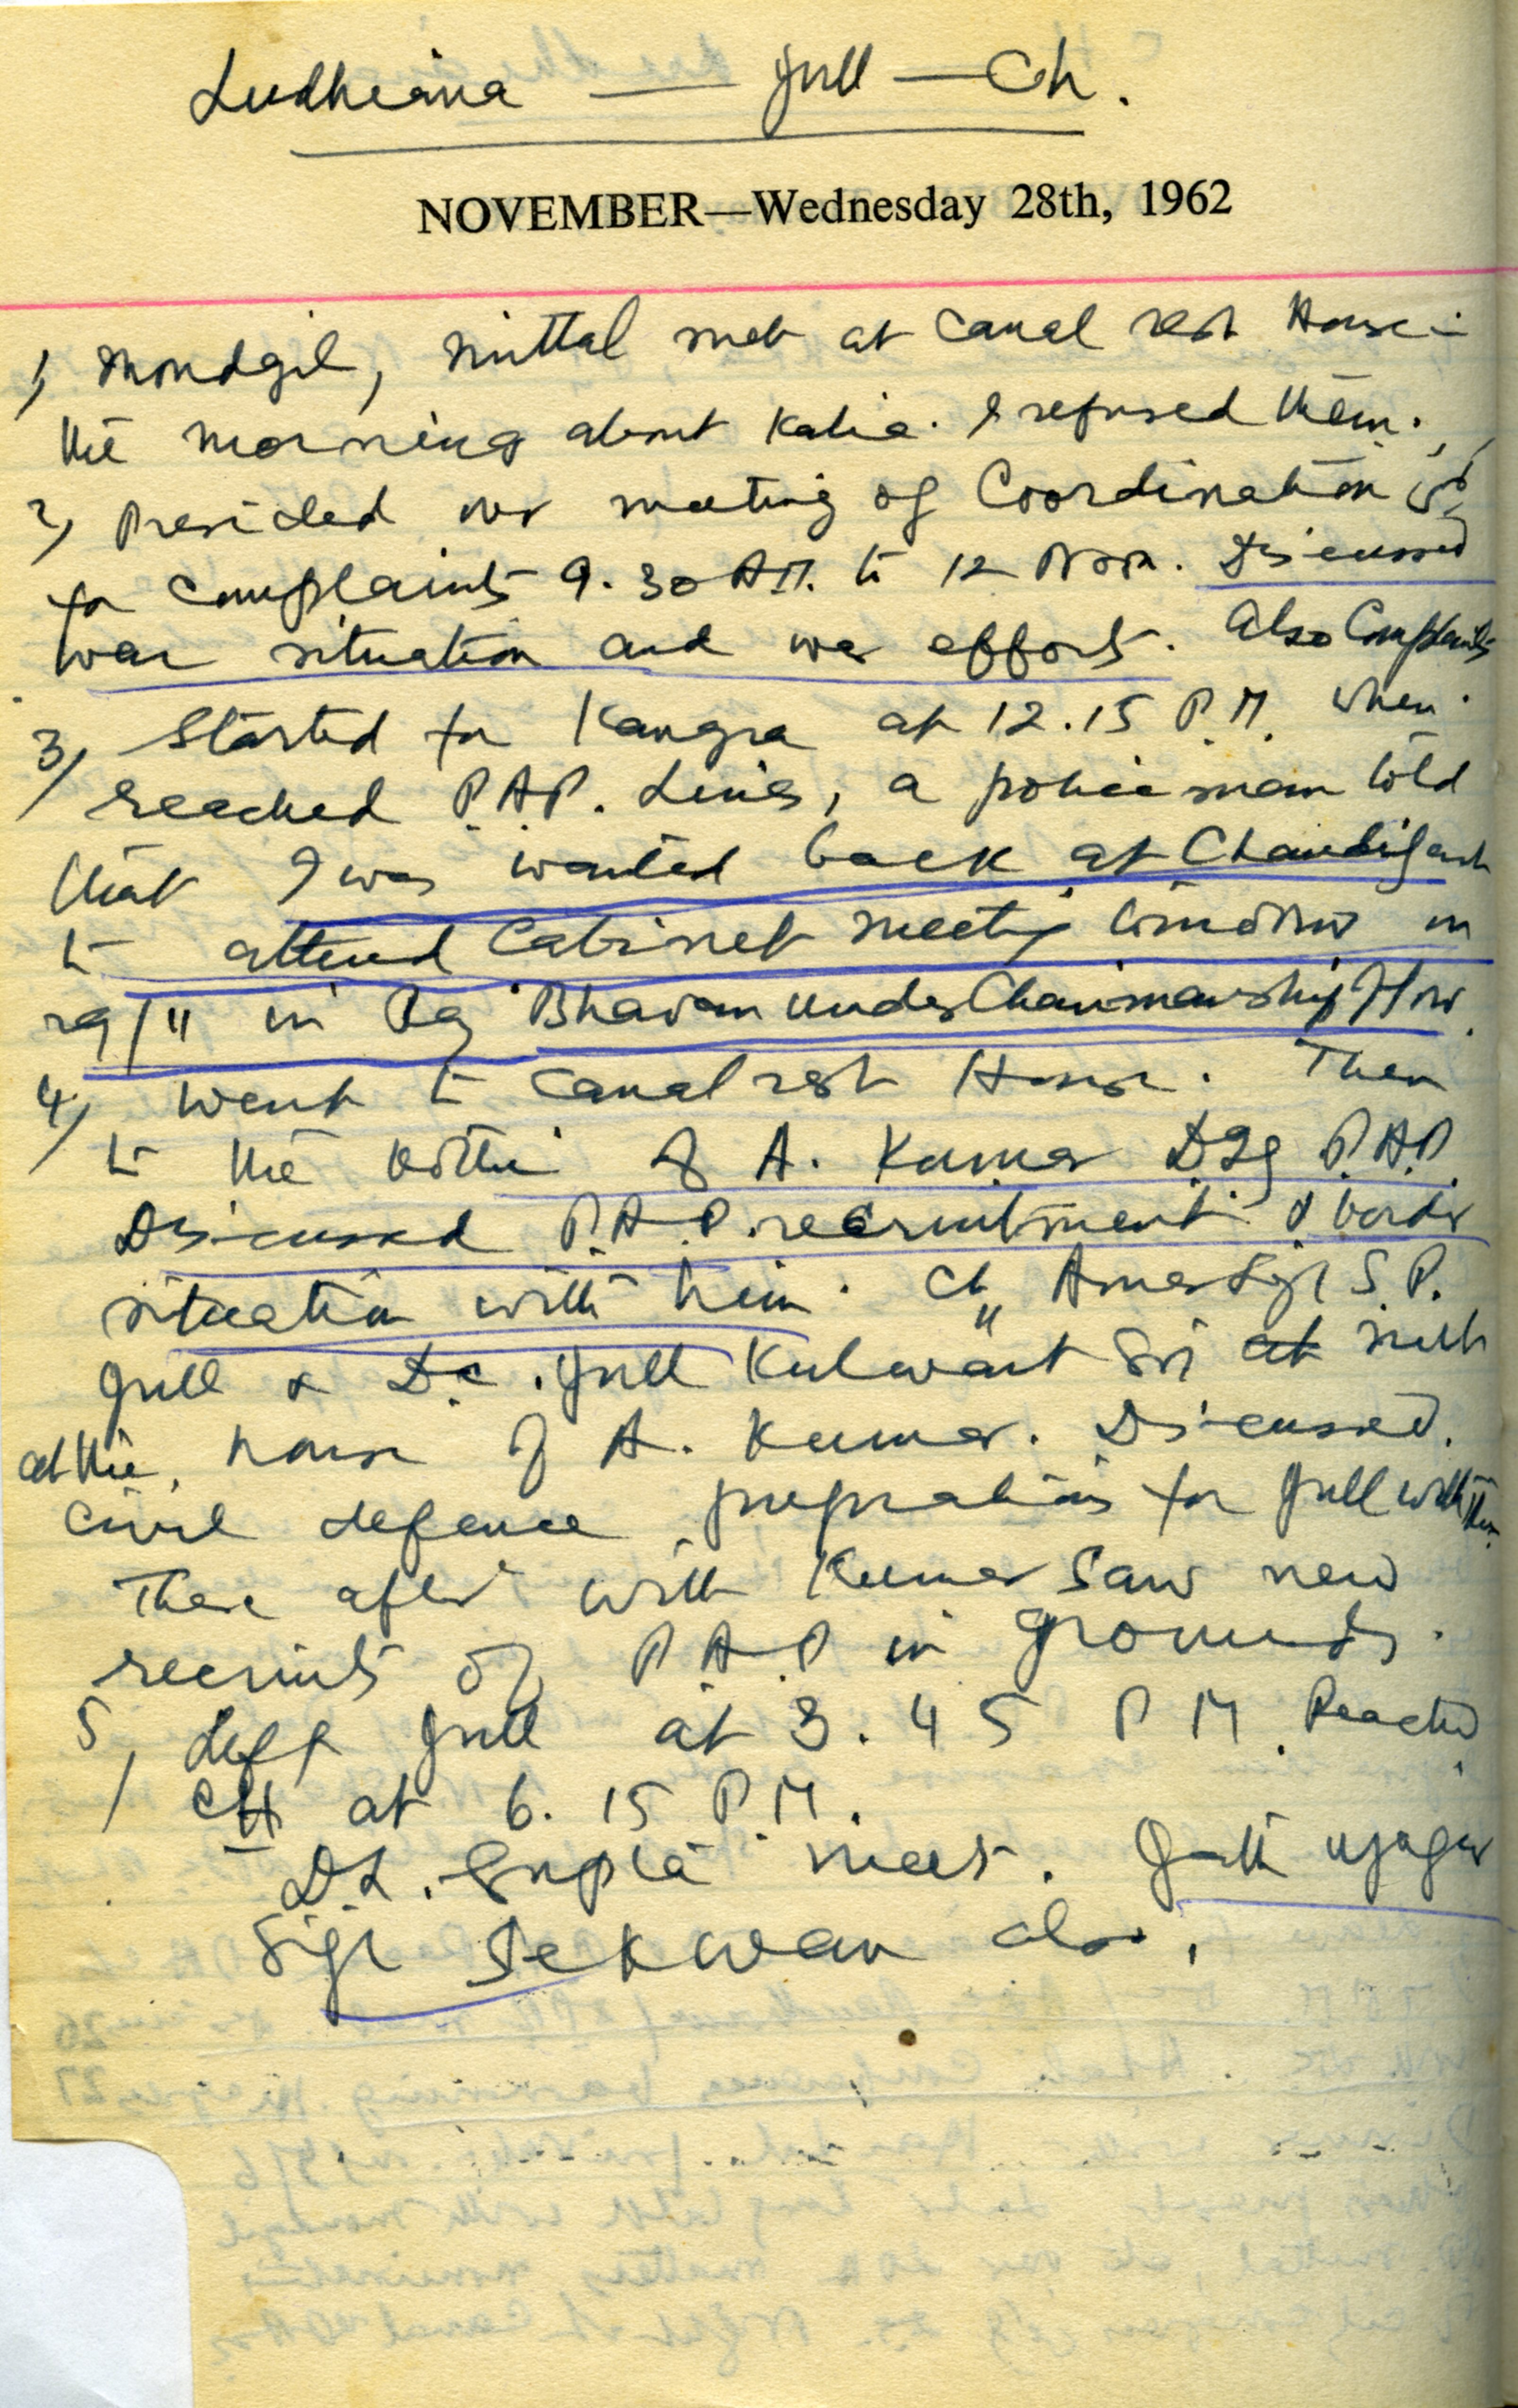 Ludhiana — Jull — Ch.
NOVEMBER—Wednesday 28th, 1962
1) Mondgil, Mittal met at Canal rest House in
the morning about Kalia. I refused them.
2) Presided over meeting of Coordination
for complaints 9.30 AM. to 12 Noon. Discussed
war situation and war efforts. Also Complaints
3) Started for Kangra at 12.15 P.M. when
reached P.A.P. Lines, a police man told
that I was wanted back at Chandigarh
to attend Cabinet meeting tomorrow on
29/11 in Raj Bhavan under Chairmanship of Gov.
4) Went to Canal rest House. Then
to the Kothi of A. Kumar DIG P.A.P.
Discussed P.A.P. recruitment & border
situation with him. Ch. Amar Sigh S.P.
Jull & D.C. Jull Kulwant Sri at met
at the house of A. Kumar. Discussed
civil defence preprations for Jull with them
There after with Kumar saw new
recruits of P.A.P in grounds.
5) Left Jull at 3.45 P M. Reached
CH at 6.15 P.M.
D.L. Gupta meets. Jath. Ujagar
Sigh Sekwan also.